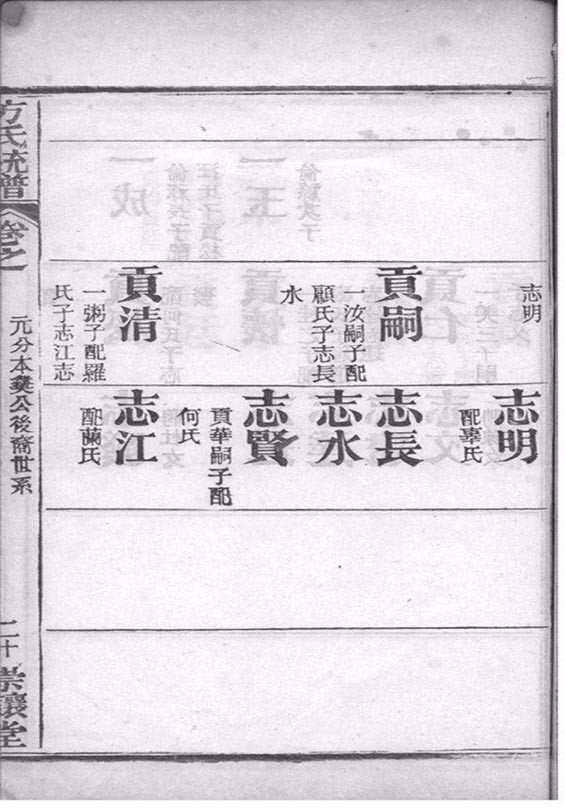 志明
貢嗣
一汝嗣子配
顧氏子志長
水
貢清
一粥子配羅
氏子志江志
志明
配辜氏
志長
志水
志賢
貢華嗣子配
何氏
志江
配蘭氏
方氏統譜
卷之
元分本公後裔世系
二十
崇讓堂